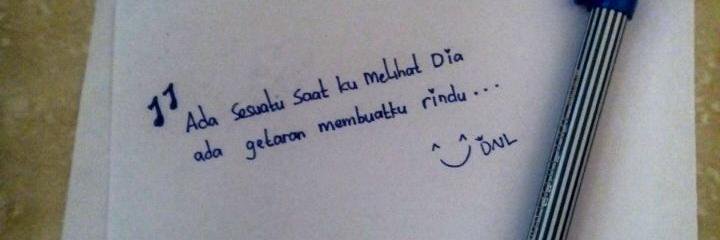 "Ada sesuatu saat ku melihat Dia
ada getaran membuatku rindu...
DNL